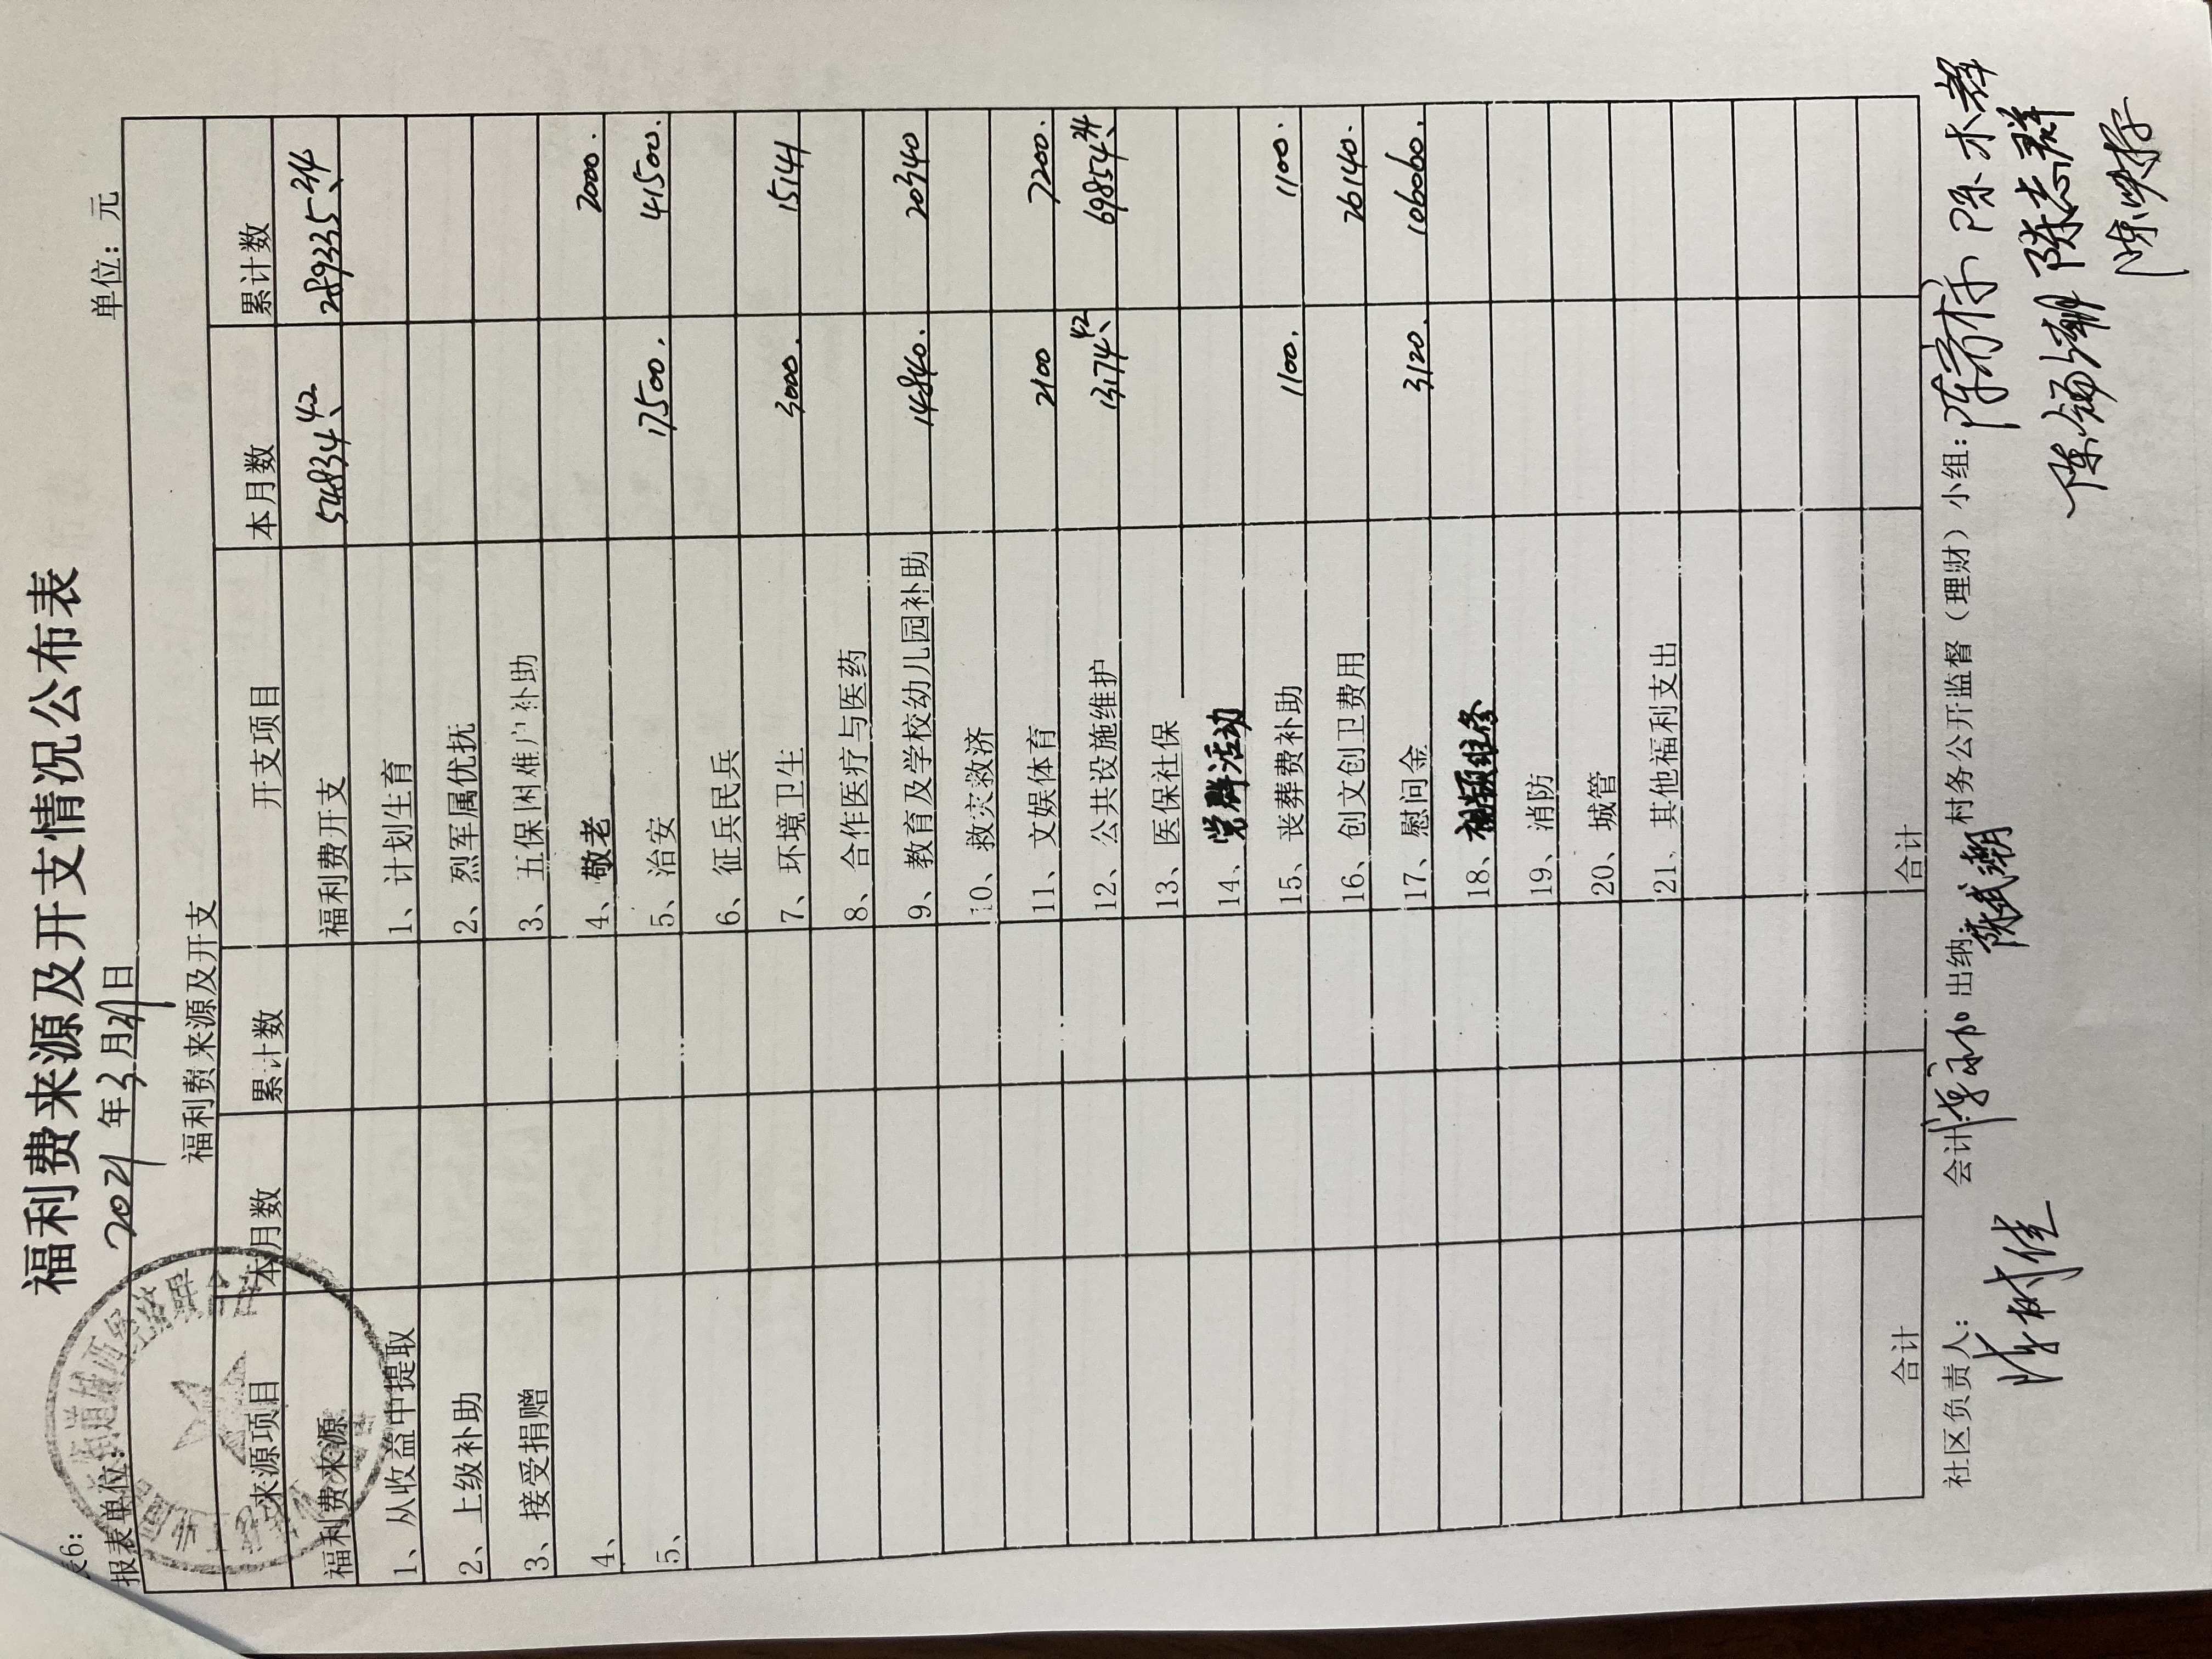 表6:
福利费来源及开支情况公布表
报表单位: 2021年3月21日 单位:元
福利费来源及开支
来源项目 本月数 累计数 开支项目 本月数 累计数
福利费来源 福利费开支 54834.42 289335.24
1、从收益中提取 1、计划生育
2、上级补助 2、烈军属优抚
3、接受捐赠 3、五保困难户补助
4、 4、敬老 2000.
5、 5、治安 17500. 41500.
6、征兵民兵
7、环境卫生 3000. 15141
8、合作医疗与医药
9、教育及学校幼儿园补助 14840. 20340
10、救灾救济
11、文娱体育 2100 7200.
12、公共设施维护 13174.42 69854.24
13、医保社保
14、党群活动
15、丧葬费补助 1100. 1100.
16、创文创卫费用 26140.
17、慰问金 3120. 106060.
18、祠颈维修
19、消防
20、城管
21、其他福利支出
合计 合计
社区负责人: 陈树佳 会计: 出纳: 陈武潮 村务公开监督(理财)小组: 陈木群
陈锡潮 陈志群